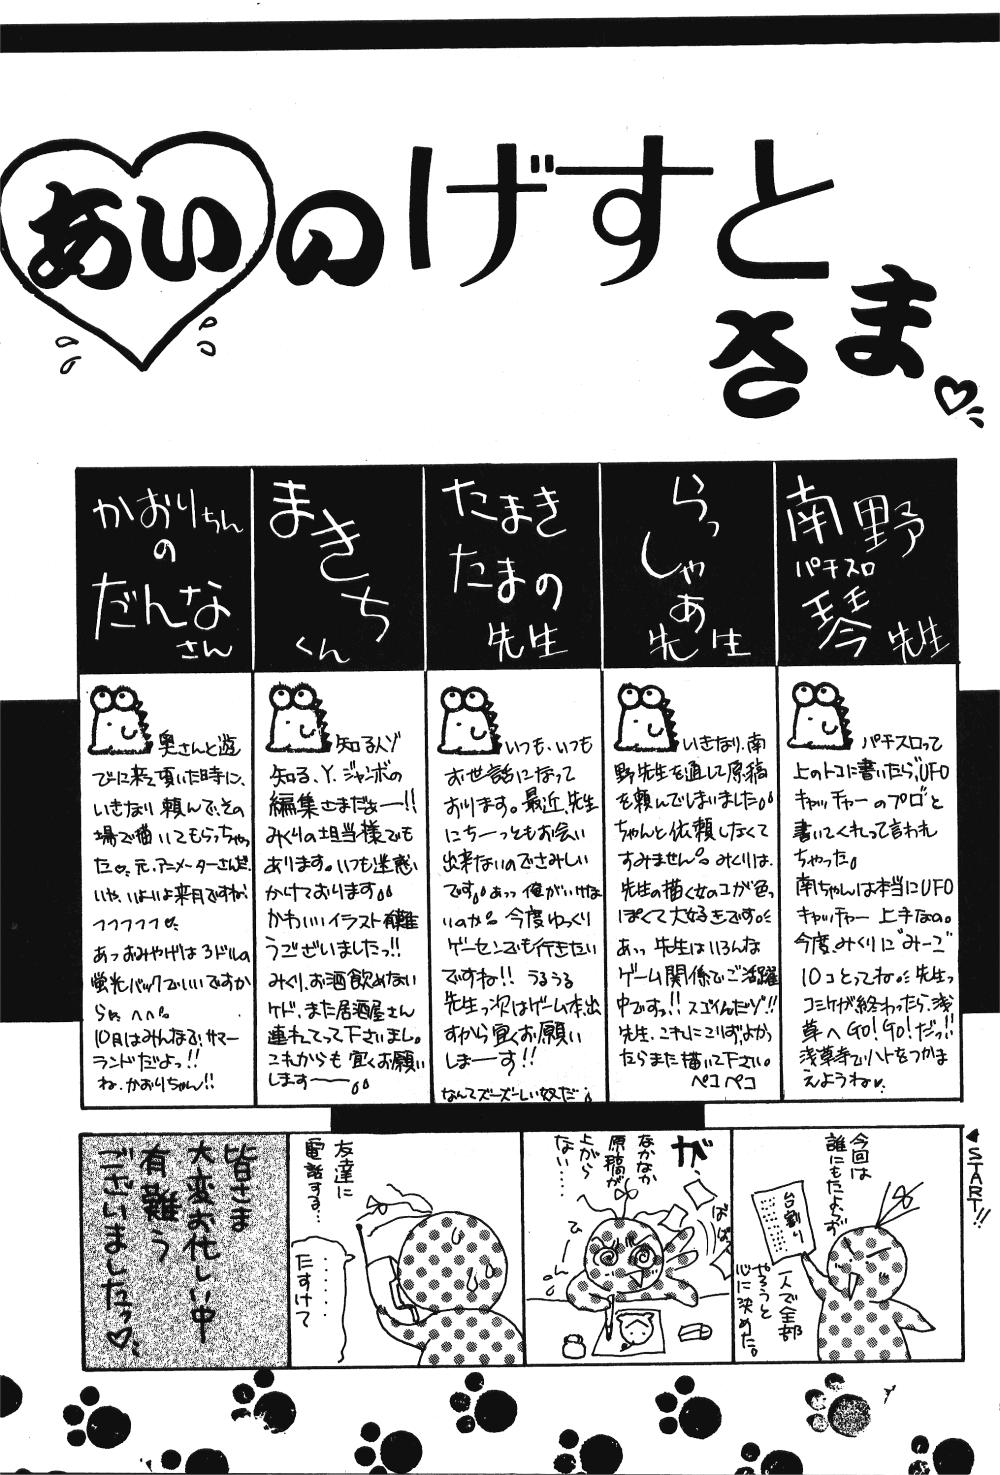 あいのげすと
さま
南野
パチスロ
琴先生
パチスロって
上のトコに書いたら、UFO
キャッチャーのプロと
書いてくれって言われ
ちゃった。
南ちゃんは本当にUFO
キャッチャー上手なの。
今度、みくりに"みーご"
10コとってね。先生っ
コミケが終わったら、浅
草へGO!GO!だっ!!
浅草寺でハトをつかま
えようね
らっ
しゃあ
先生
いきなり、南
野先生を通して原稿
を頼んでしまいました。
ちゃんと依頼しなくて
すみません。みくりは、
先生の描く女のコが色っ
ぽくて大好きです。
あっ先生はいろんな
ゲーム関係でご活躍
中ですっ!!スゴイんだゾ!!
先生、これにこりず、よかっ
たらまた描いて下さい。
ペコペコ
たまき
たまの
先生
いつも、いつも
お世話になって
おります。最近、先生
にちーっともお会い
出来ないのでさみしい
です。あっ俺がいけな
いのか。今度ゆっくり
ゲーセンでも行きたい
ですね!!うるうる
先生っ次はゲーム本、出
すから宜くお願い
しまーす!!
なんてズーズーしい奴だ
まきち
くん
知る人ゾ
知る、Y.ジャンボの
編集さまだぁー!!
みくりの担当様でも
あります。いつも迷惑
かけております
かわいいイラスト有難
うございましたっ!!
みくり、お酒飲めない
ケド、また居酒屋さん
連れてって下さいまし。
これからも宜くお願い
しますー
かおりちん
の
だんな
さん
奥さんと遊
びに来て頂いた時に、
いきなり頼んで、その
場で描いてもらっちゃっ
た。元、アニメーターさんだ。
いや、いよいよ来月ですねか
フフフフフ
あっおみやげは3ドルの
蛍光パックでいいですか
らね へへ。
10月はみんなで、サマー
ランドだよっ!!
ね、かおりちゃん!!
START!!
今回は
誰にもたよらず
台割り
一人で全部
やろうと
心に決めた。
が、
なかなか
原稿が
上がら
ない……
ばばっ
ひーん
友達に
電話する…
……
たすけて
皆さま
大変お忙しい中
有難う
ございましたっ